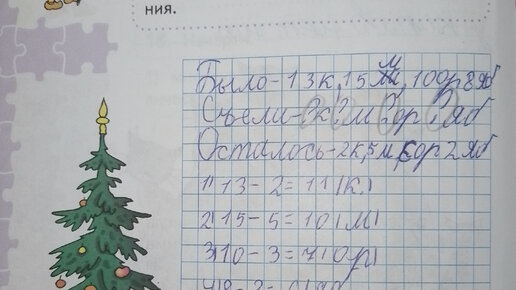 ния.
Было-13к, 15м, 10ор 8яб
Съели-?к ?м ?ор ? яб
Осталось-2к, 5м, 3ор 2яб
1) 13-2=11(к.)
2) 15-5=10(м)
3) 10-3=7(ор)
4) 8-2=6(яб